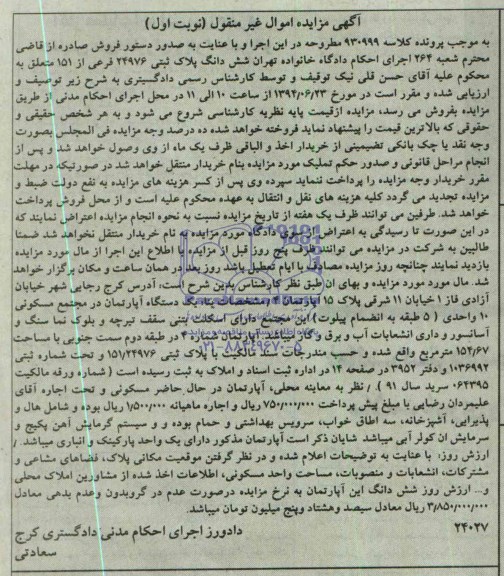 آگهی مزایده اموال غیر منقول (نوبت اول)
به موجب پرونده کلاسه ۹۳۰۹۹۹ مطروحه در این اجرا و با عنایت به صدور دستور فروش صادره از قاضی
محترم شعبه ۲۶۴ اجرای احکام دادگاه خانواده تهران شش دانگ پلاک ثبتی ۲۴۹۷۶ فرعی از ۱۵۱ متعلق به
محکوم علیه آقای حسن قلی نیک توقیف و توسط کارشناس رسمی دادگستری به شرح زیر توصیف و
ارزیابی شده و مقرر است در مورخ ۱۳۹۴/۰۶/۲۳ از ساعت ۱۰ الی ۱۱ در محل اجرای احکام مدنی از طریق
مزایده بفروش می رسد، مزایده ازقیمت پایه نظریه کارشناسی شروع می شود و به هر شخص حقیقی و
حقوقی که بالاترین قیمت را پیشنهاد نماید فروخته خواهد شد ده درصد وجه مزایده فی المجلس بصورت
وجه نقد یا چک بانکی تضمینی از خریدار اخذ و الباقی ظرف یک ماه از وی وصول خواهد شد و پس از
انجام مراحل قانونی و صدور حکم تملیک مورد مزایده بنام خریدار منتقل خواهد شد در صورتیکه در مهلت
مقرر خریدار وجه مزایده را پرداخت ننماید سپرده وی پس از کسر هزینه های مزایده به نفع دولت ضبط و
مزایده تجدید می گردد کلیه هزینه های نقل و انتقال به عهده محکوم علیه است و از محل فروش پرداخت
خواهد شد. طرفین می توانند ظرف یک هفته از تاریخ مزایده نسبت به نحوه انجام مزایده اعتراض نمایند که
در این صورت تا رسیدگی به اعتراض از سوی دادگاه مورد مزایده به نام خریدار منتقل نخواهد شد ضمنا
طالبین به شرکت در مزایده می توانند ظرف پنج روز قبل از مزایده با اطلاع این اجرا از مال مورد مزایده
بازدید نمایند چنانچه روز مزایده مصادف با ایام تعطیل باشد روز بعد در همان ساعت و مکان برگزار خواهد
شد. مال مورد مورد مزایده و بهای ان طبق نظر کارشناس بدین شرح است، آدرس کرج رجایی شهر خیابان
آزادی فاز ۱ خیابان ۱۱ شرقی پلاک ۱۵ آپارتمان ۴ / مشخصات بنا: یک دستگاه آپارتمان در مجتمع مسکونی
۱۰ واحدی ( ۵ طبقه به انضمام پیلوت) این مجتمع دارای اسکلت بتنی سقف تیرچه و بلوک نما سنگ و
آسانسور و داری انشعابات آب و برق و گاز میباشد. آپارتمان شماره ۴ در طبقه دوم سمت جنوبی با مساحت
۱۵۴/۶۷ مترمربع واقع شده و حسب مندرجات سند مالکیت با پلاک ثبتی ۱۵۱/۲۴۹۷۶ و تحت شماره ثبتی
۱۰۳۶۹۹۲ و دفتر ۳۹۵۲ در صفحه ۱۴ در اداره ثبت اسناد و املاک به ثبت رسیده است ( شماره ورقه مالکیت
۰۶۴۳۹۵ سرید سال ۹۱ ). / نظر به معاینه محلی، آپارتمان در حال حاضر مسکونی و تحت اجاره آقای
علیمردان رضایی با مبلغ پیش پرداخت ۷۵۰/۰۰۰/۰۰۰ ریال و اجاره ماهیانه ۱/۵۰۰/۰۰۰ ریال بوده و شامل هال و
پذیرایی، آشپزخانه، سه اطاق خواب، سرویس بهداشتی و حمام بوده و و سیستم گرمایش آهن پکیج و
سرمایش ان کولر آبی میباشد. شایان ذکر است آپارتمان مذکور دارای یک واحد پارکینک و انباری میباشد. /
ارزش روز: با عنایت به توضیحات اعلام شده و در نظر گرفتن موقعیت مکانی پلاک، فضاهای مشاعی و
مشترکات، انشعابات و منصوبات، مساحت واحد مسکونی، اطلاعات اخذ شده از مشاورین املاک محلی
و... ارزش روز شش دانگ این آپارتمان به نرخ مزایده درصورت عدم در گروبدون وعدم بدهی معادل
۳/۸۵۰/۰۰۰/۰۰۰ ریال معادل سیصد وهشتاد وپنج میلیون تومان میباشد.
۲۴۰۲۷
دادورز اجرای احکام مدنی دادگستری کرج
سعادتی